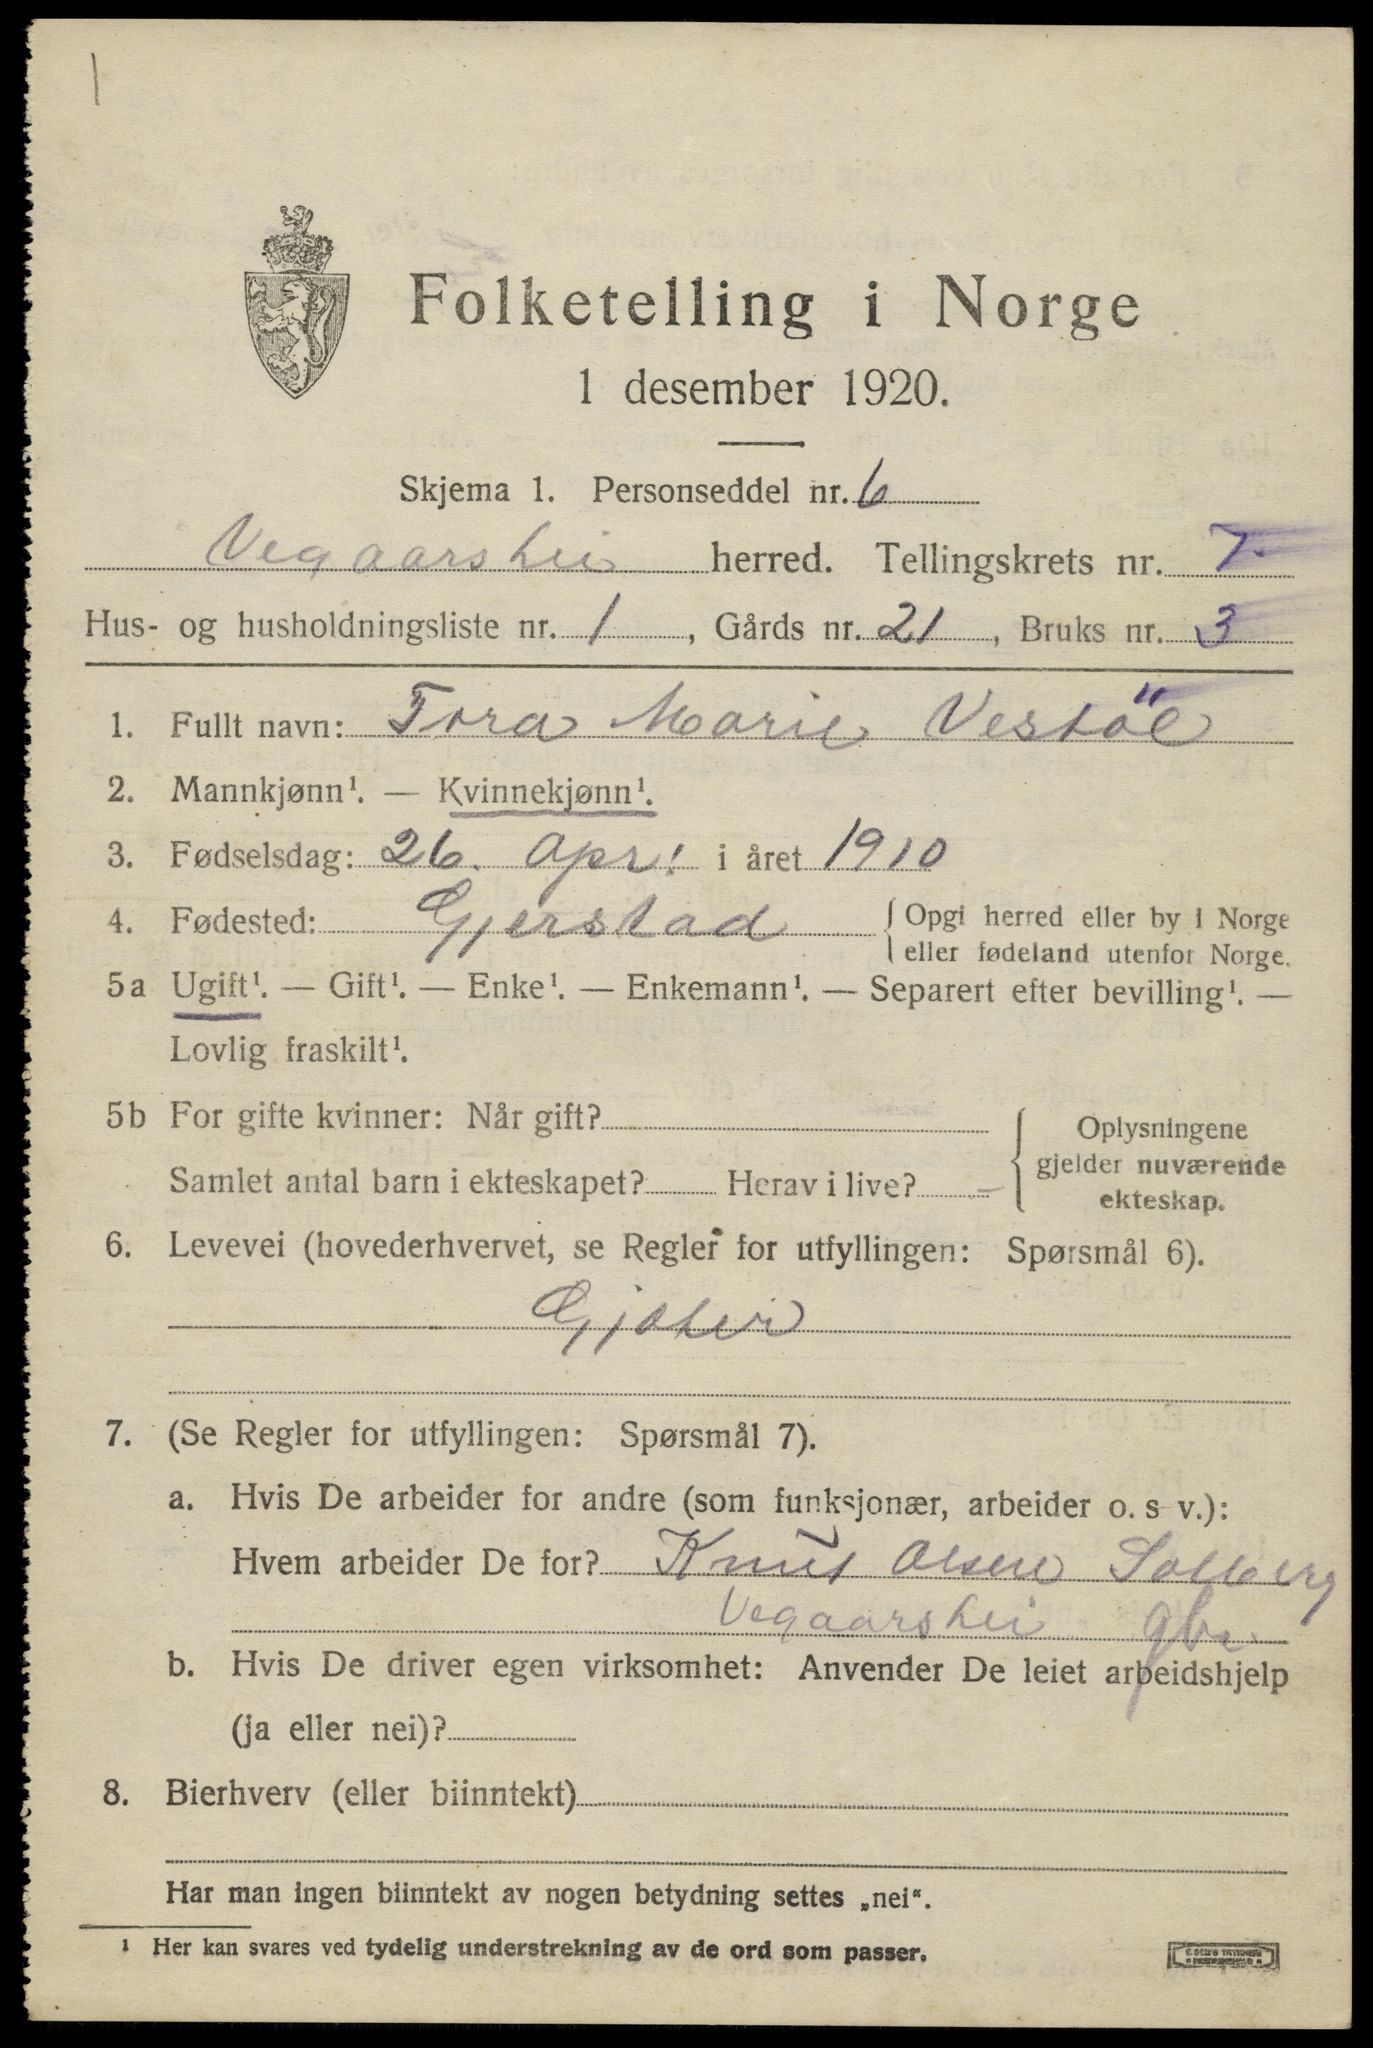 Folketelling i Norge
1 desember 1920.
Skjema 1. Personseddel nr. 6
Vegaarshei herred. Tellingskrets nr. 7
Hus- og husholdningsliste nr. 1, Gårds nr. 21, Bruks nr. 3
1. Fullt navn: Tora Marie Vestöl
2. Mannkjønn¹. — Kvinnekjønn¹.
3. Fødselsdag: 26. Apr. i året 1910
4. Fødested: Gjerstad {Opgi herred eller by i Norge
eller fødeland utenfor Norge.
5a Ugift¹. — Gift¹. — Enke¹. — Enkemann¹. — Separert efter bevilling¹. —
Lovlig fraskilt¹.
5b For gifte kvinner: Når gift?
Samlet antal barn i ekteskapet? Herav i live? —
Oplysningene
gjelder nuværende
ekteskap.
6. Levevei (hovederhvervet, se Regler for utfyllingen: Spørsmål 6).
Gjæter
7. (Se Regler for utfyllingen: Spørsmål 7).
a. Hvis De arbeider for andre (som funksjonær, arbeider o. s v.):
Hvem arbeider De for? Knut Olsen Solberg
Vegaarshei gbr.
b. Hvis De driver egen virksomhet: Anvender De leiet arbeidshjelp
(ja eller nei)?
8. Bierhverv (eller biinntekt)
Har man ingen biinntekt av nogen betydning settes „nei“.
¹ Her kan svares ved tydelig understrekning av de ord som passer.